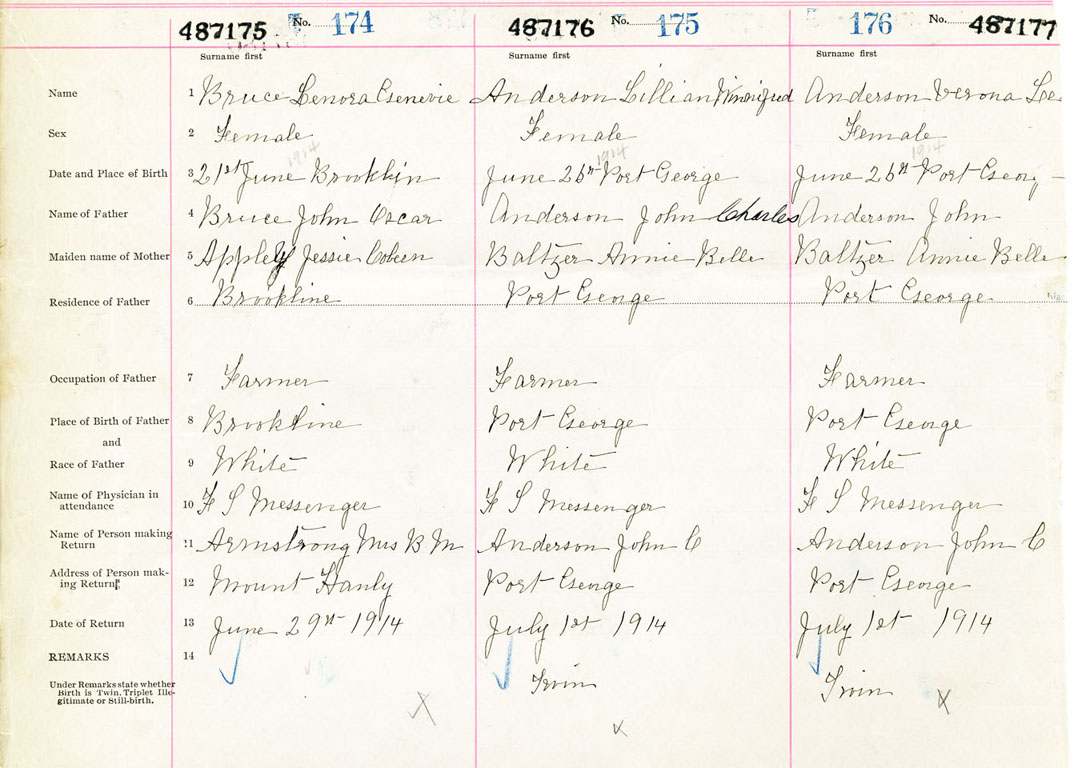 487175 No. 174 487176 No. 175 176 No. 487177
Surname first Surname first Surname first
Name 1 Bruce Lenora Genevie Anderson Lillian Winnifred Anderson Verona Lee
Sex 2 Female Female Female
1914 1914 1914
Date and Place of Birth 3 21st June Brooklin June 26th Port George June 26th Port Georg
Name of Father 4 Bruce John Oscar Anderson John Charles Anderson John
Maiden name of Mother 5 Appleby Jessie Coleen Baltzer Annie Belle Baltzer Annie Belle
Residence of Father 6 Brookline Port George Port George
Occupation of Father 7 Farmer Farmer Farmer
Place of Birth of Father 8 Brookline Port George Port George
and
Race of Father 9 White White White
Name of Physician in
attendance 10 F S Messenger F S Messenger F S Messenger
Name of Person making
Return 11 Armstrong Mrs B M Anderson John C Anderson John C
Address of Person mak-
ing Return 12 Mount Hanly Port George Port George
Date of Return 13 June 29th 1914 July 1st 1914 July 1st 1914
REMARKS 14
Under Remarks state whether
Birth is Twin, Triplet Ille-
gitimate or Still-birth.
Twin Twin
X X X